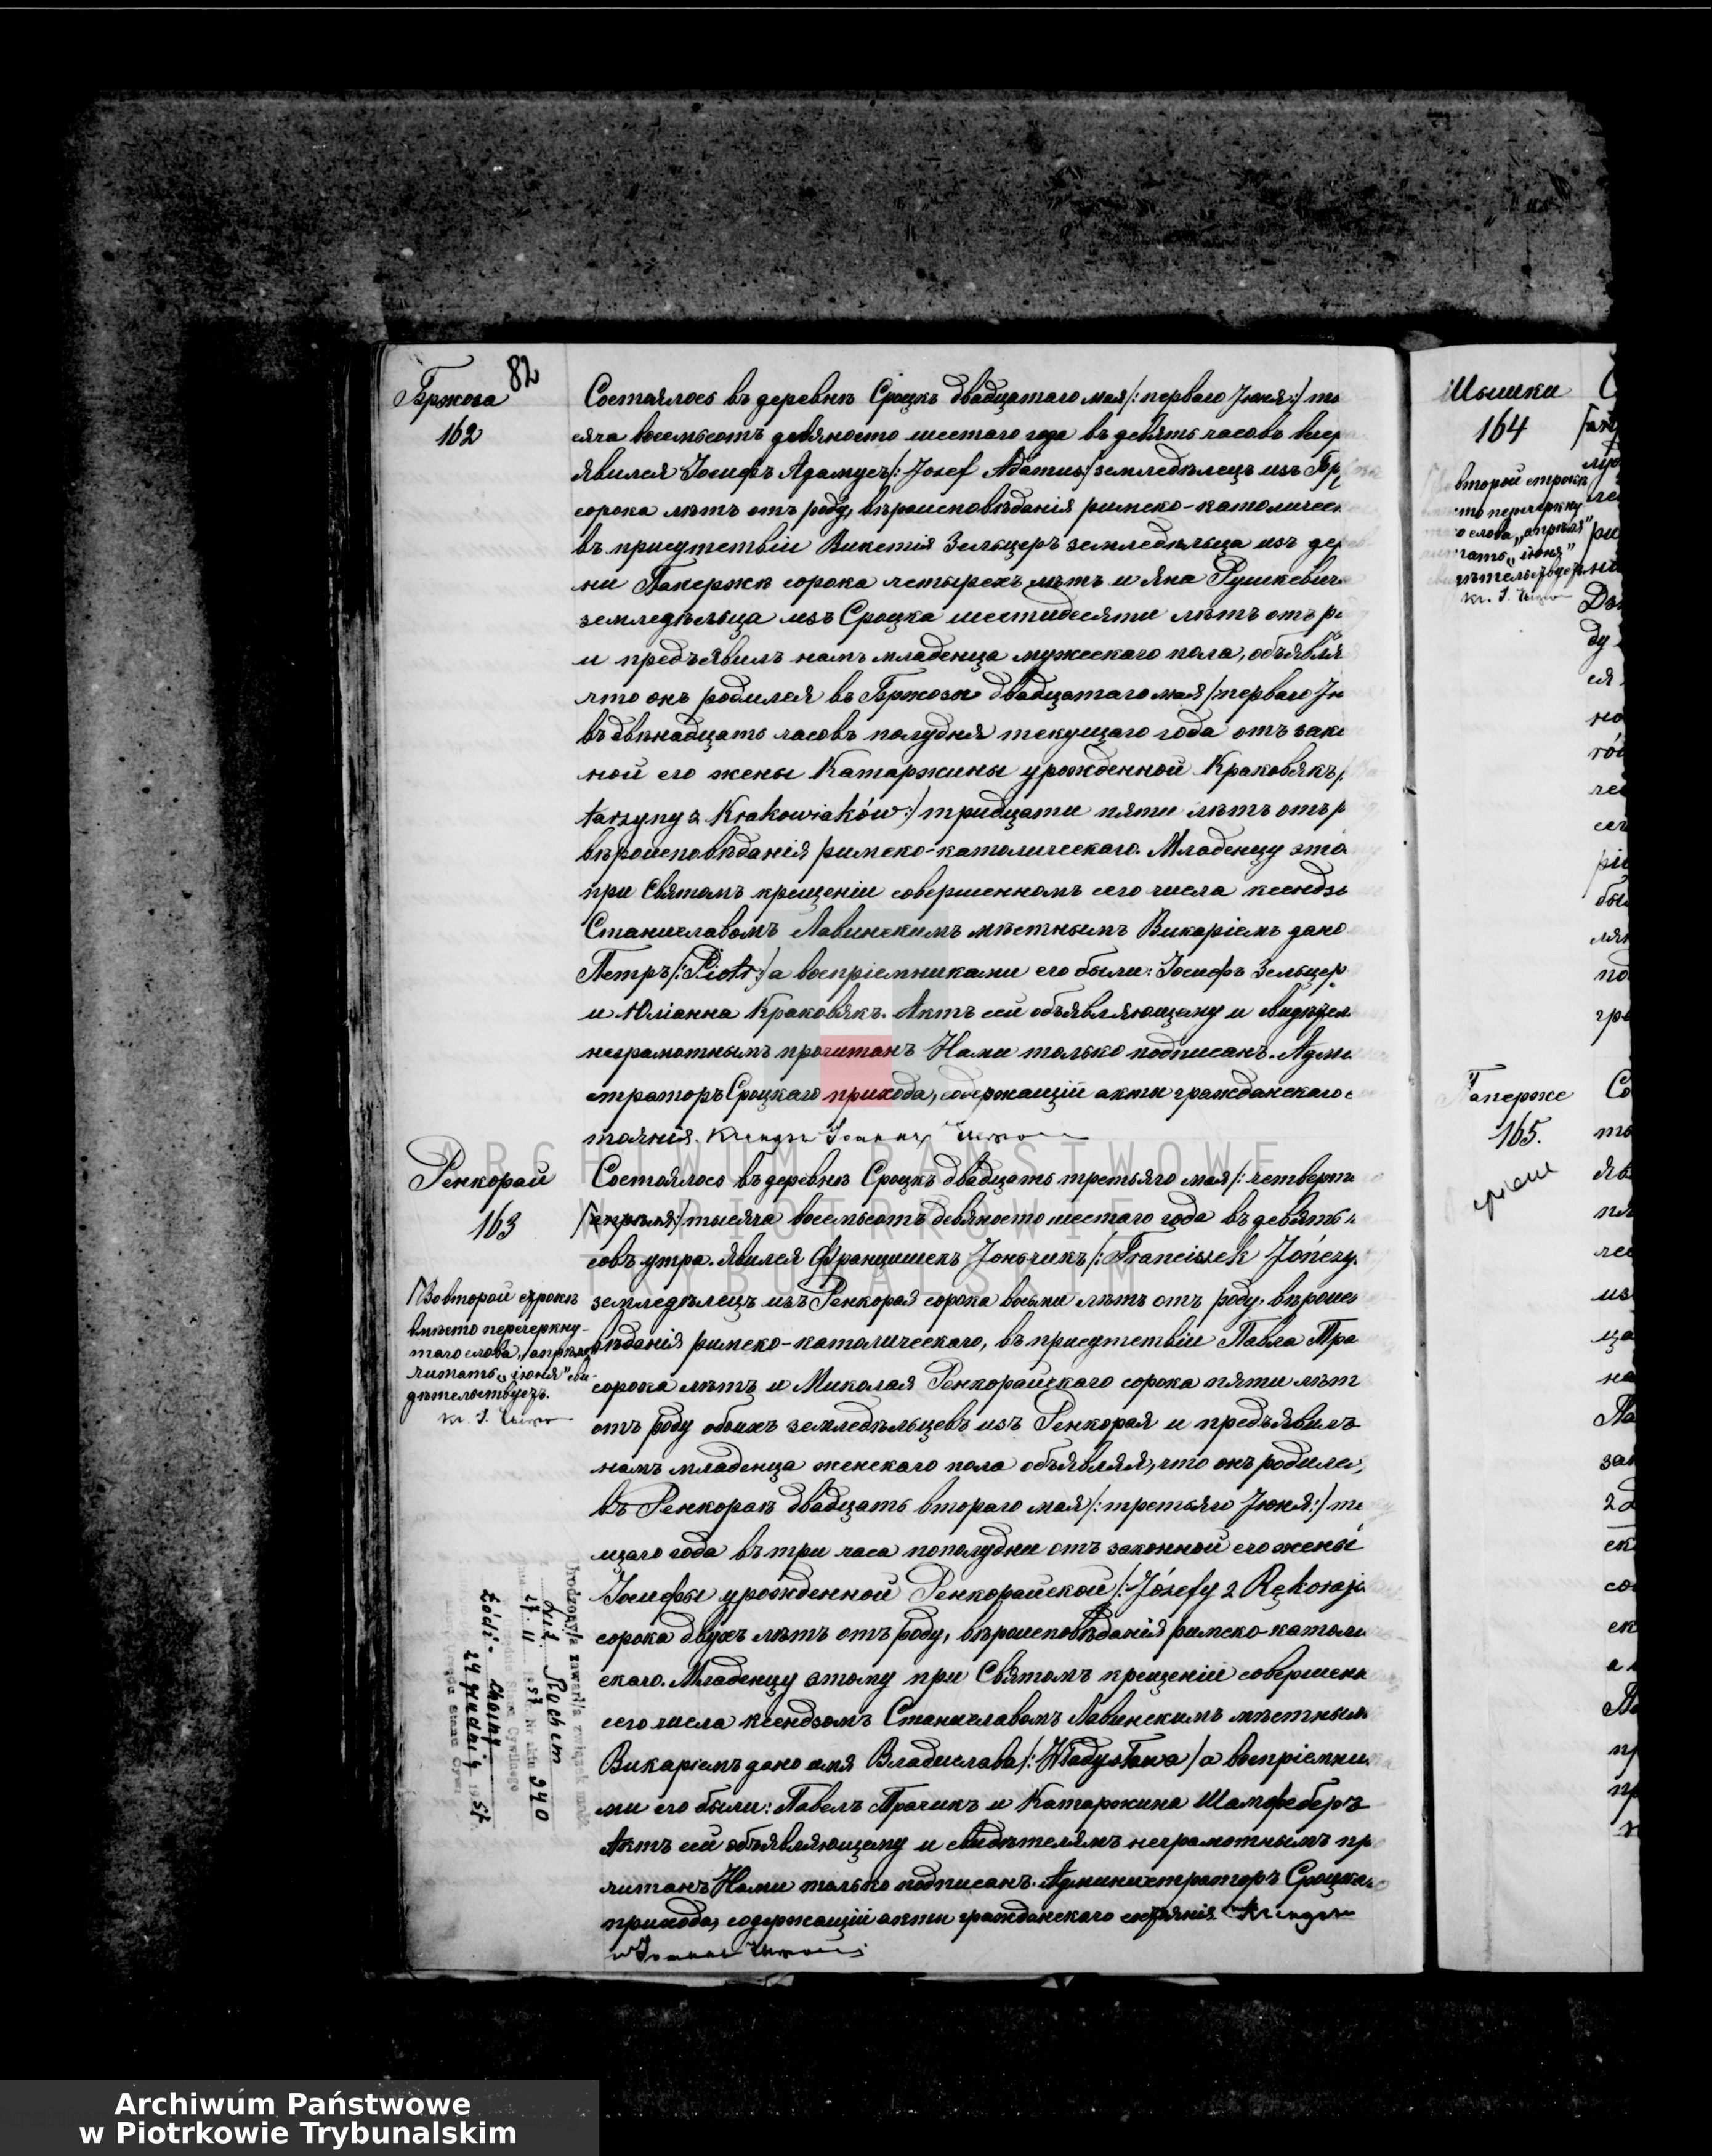 82
Бржоза
162
Состоялось въ деревнѣ Сроцкъ двадцатаго мая /: перваго Іюня :/ ты
сяча восемьсотъ девяносто шестаго года въ девять часовъ вече
явился Іосифъ Адамусъ /: Józef Adamus :/ земледѣлецъ изъ Бр
сорока лѣтъ отъ роду, вѣроисповѣданія римско-католичес
въ присутствіи Викентія Зельцеръ земледѣльца изъ дер
ни Папержи сорока четырехъ лѣтъ и Яна Рушкевич
земледѣльца изъ Сроцка шестидесяти лѣтъ отъ р
и предъявилъ намъ младенца мужескаго пола, объявля
что онъ родился въ Бржозѣ двадцатаго мая /: перваго Ію
въ двѣнадцать часовъ полудня текущаго года отъ зако
ной его жены Катаржины урожденной Краковякъ /:
tarzyny z Krakowiaków :/ тридцати пяти лѣтъ отъ р
вѣроисповѣданія римско-католическаго. Младенцу это
при Святомъ крещеніи совершенномъ сего числа ксендзо
Станиславомъ Лавинскимъ мѣстнымъ Викаріемъ дано
Петръ /: Piotr :/ а воспріемниками его были: Іосифъ Зельцер
и Юліанна Краковякъ. Актъ сей объявляющему и свидѣтел
неграмотнымъ прочитанъ Нами только подписанъ. Адми
страторъ Сроцкаго прихода, содержащій акты гражданскаго с
тоянія.
Ренкорай
163
Состоялось въ деревнѣ Сроцкъ двадцать третьяго мая /: четверта
/апрѣля :/ тысяча восемьсотъ девяносто шестаго года въ девять ч
совъ утра. явился Францишекъ Іоньчикъ /: Franciszek Jończy
земледѣлецъ изъ Ренкорая сорока восьми лѣтъ отъ роду, вѣроис
вѣданія римско-католическаго, въ присутствіи Павла Тра
сорока лѣтъ и Миколая Ренкорайскаго сорока пяти лѣт
отъ роду обоихъ земледѣльцевъ изъ Ренкорая и предъявилъ
намъ младенца женскаго пола объявляя, что онъ родился
въ Ренкораѣ двадцать втораго мая /: третьяго Іюня :/ те
щаго года въ три часа пополудни отъ законной его жены
Іосифы урожденной Ренкорайской /: Józefy z Rękoraj
сорока двухъ лѣтъ отъ роду, вѣроисповѣданія римско-католи
скаго. Младенцу этому при Святомъ крещеніи совершенн
сего числа ксендзомъ Станиславомъ Лавинскимъ мѣстным
Викаріемъ дано имя Владислава /: Władysława / а воспріемни
ми его были: Павелъ Трачикъ и Катаржина Шамфеберъ
Актъ сей объявляющему и свидѣтелямъ неграмотнымъ пр
читанъ Нами только подписанъ. Администраторъ Сроцка
прихода, содержащій акты гражданскаго состоянія
Во второй строкѣ
вмѣсто перечеркну-
таго слова „апрѣля"
читать „іюня" сви-
дѣтельствуетъ.
Urodzony/a zawarł/a związek małż
Rochem
Nr. aktu 940
Stanu Cywilnego
Łódź - Chojny
29 grudnia 1957
Мышки
164
второй строкѣ
перечеркну
слова „апрѣля"
„іюня"
Паперже
165.
ARCHIWUM PAŃSTWOWE
W PIOTRKOWIE
TRYBUNALSKIM
Archiwum Państwowe
w Piotrkowie Trybunalskim